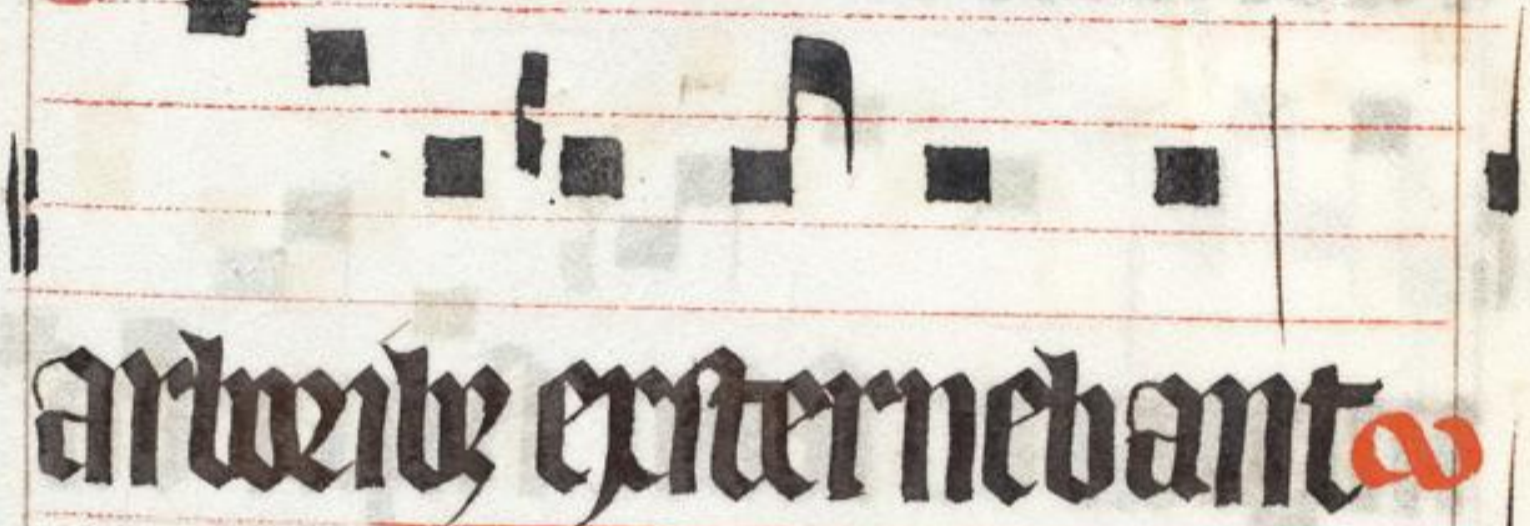 arboribꝫ exſternebant